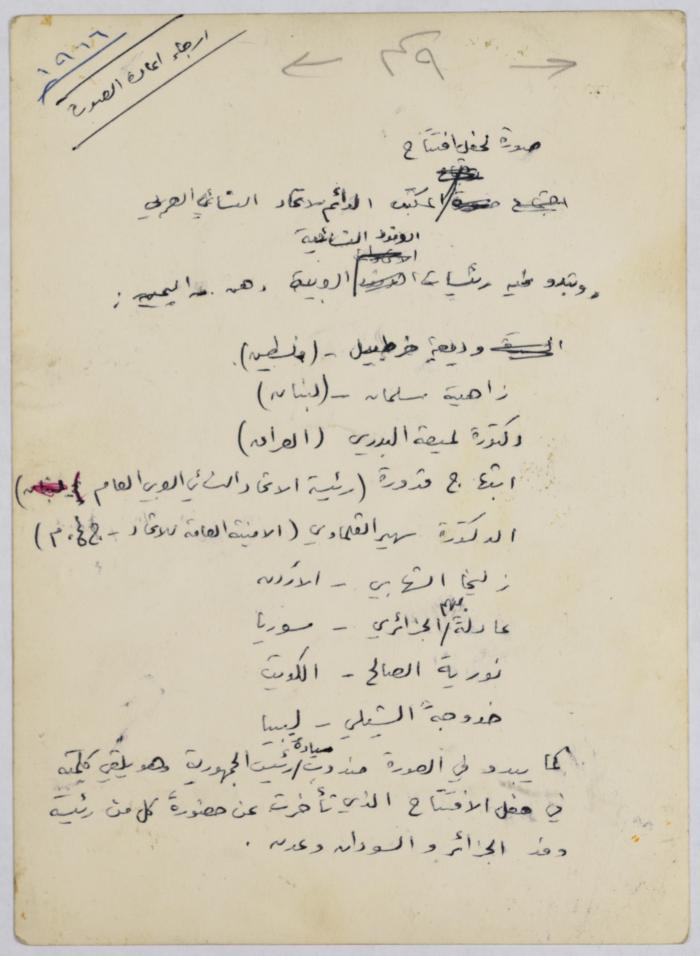 ١٩٦٦
ارجاء اعادة الصورة
صورة لحفل افتتاح
اجتماع المكتب الدائم للاتحاد النسائي العربي
الوفود النسائية
وتبدو فيه رئيسات العربية ، وهن من اليمين :
وديعة خرطبيل - (فلسطين)
زاهية سلمان - (لبنان)
دكتورة لميعة البدري (العراق)
ابتهاج قدورة (رئيسة الاتحاد النسائي العربي العام)
الدكتورة سهير القلماوي (الامينة العامة للاتحاد - ج.ع.م)
زليخا الشهابي - الأردن
عادلة بيهم / الجزائري - سوريا
نورية الصالح - الكويت
خدوجة الشيلي - ليبيا
كما يبدو في الصورة مندوب / سيادة رئيس الجمهورية وهو يلقي كلمته
في حفل الافتتاح الذي تأخرت عن حضورة كل من رئيسة
وفد الجزائر و السودان وعدن .